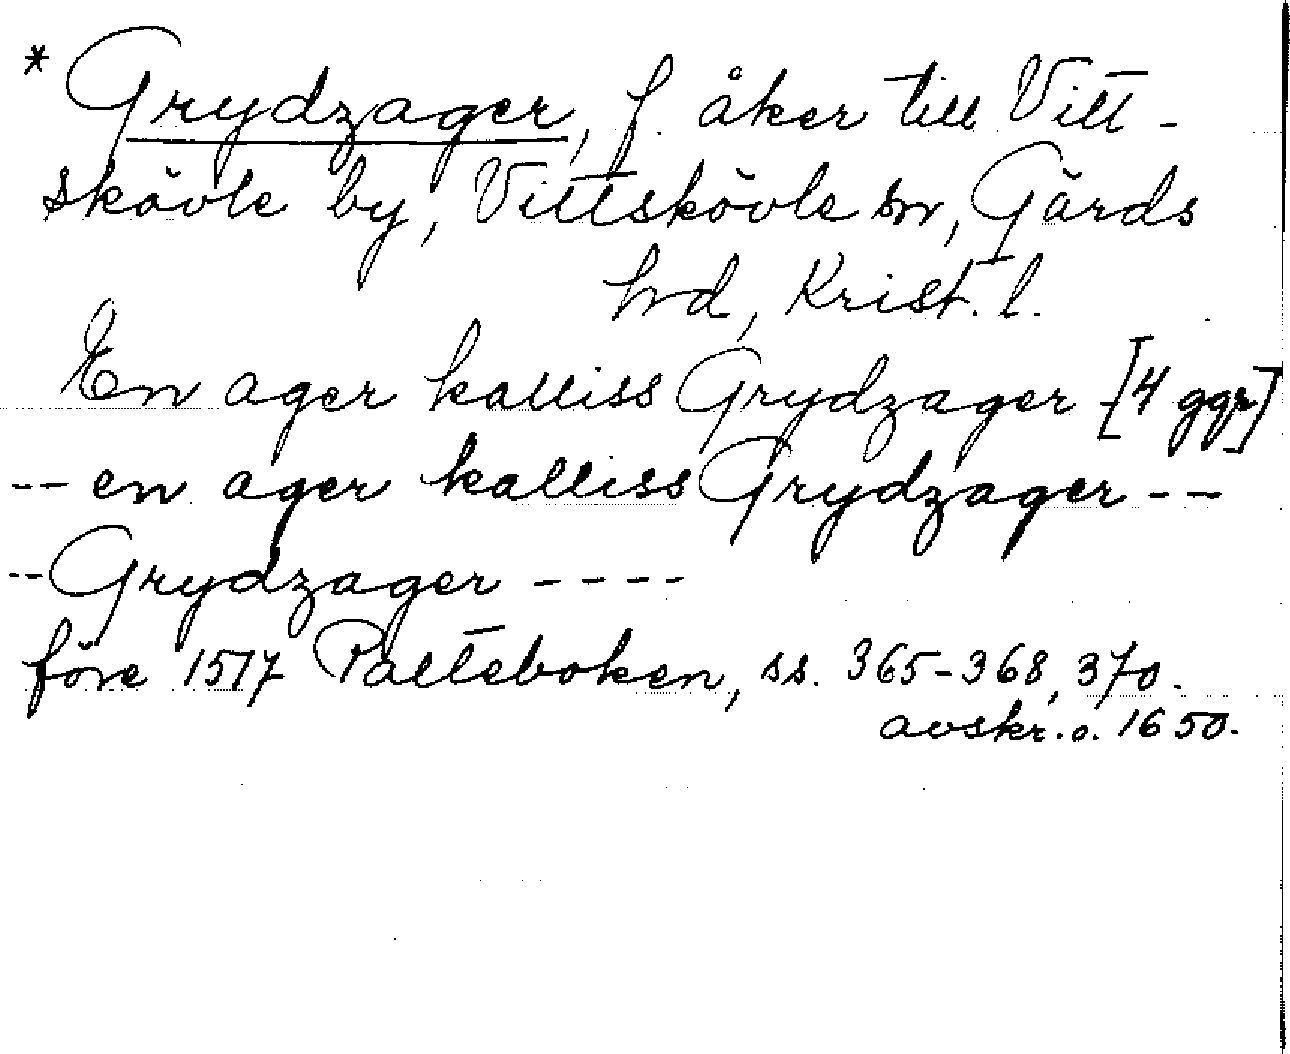 * Grydzager, f. åker till Vitt-
skövle by, Vittskövle sn, Gärds
hd, Krist. l.
En ager kalliss Grydzager [4 ggr]
-- en ager kalliss Grydzager --
-- Grydzager ----
före 1517 Palteboken, ss. 365-368, 370.
avskr. o. 1650.